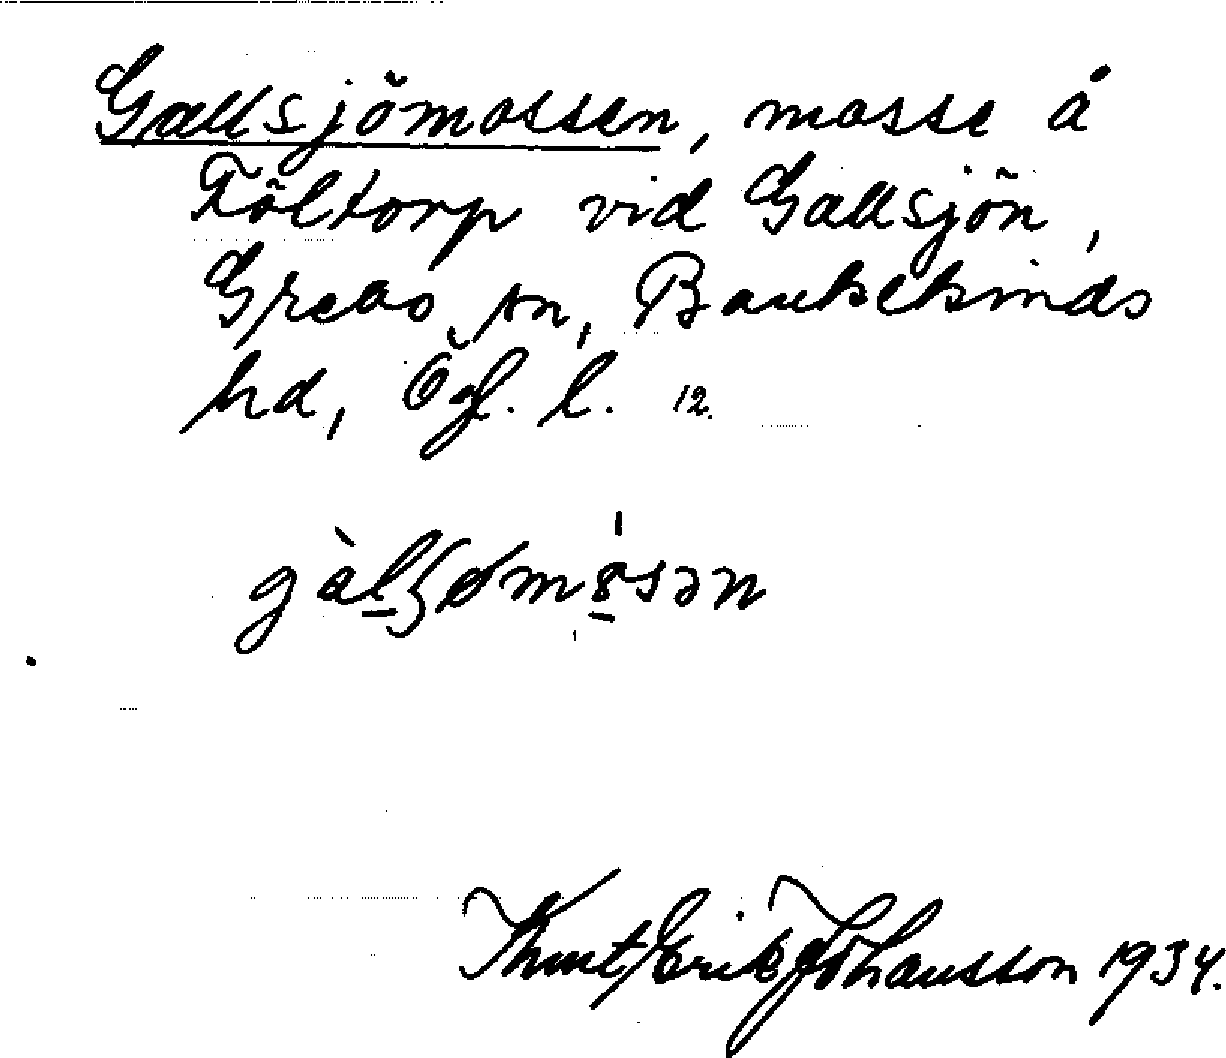 Gallsjömossen, mosse å
Föltorp vid Gallsjön,
Grebo sn, Bankekinds
hd, Ögl. l. 12.
Knut Erik Johansson 1934.